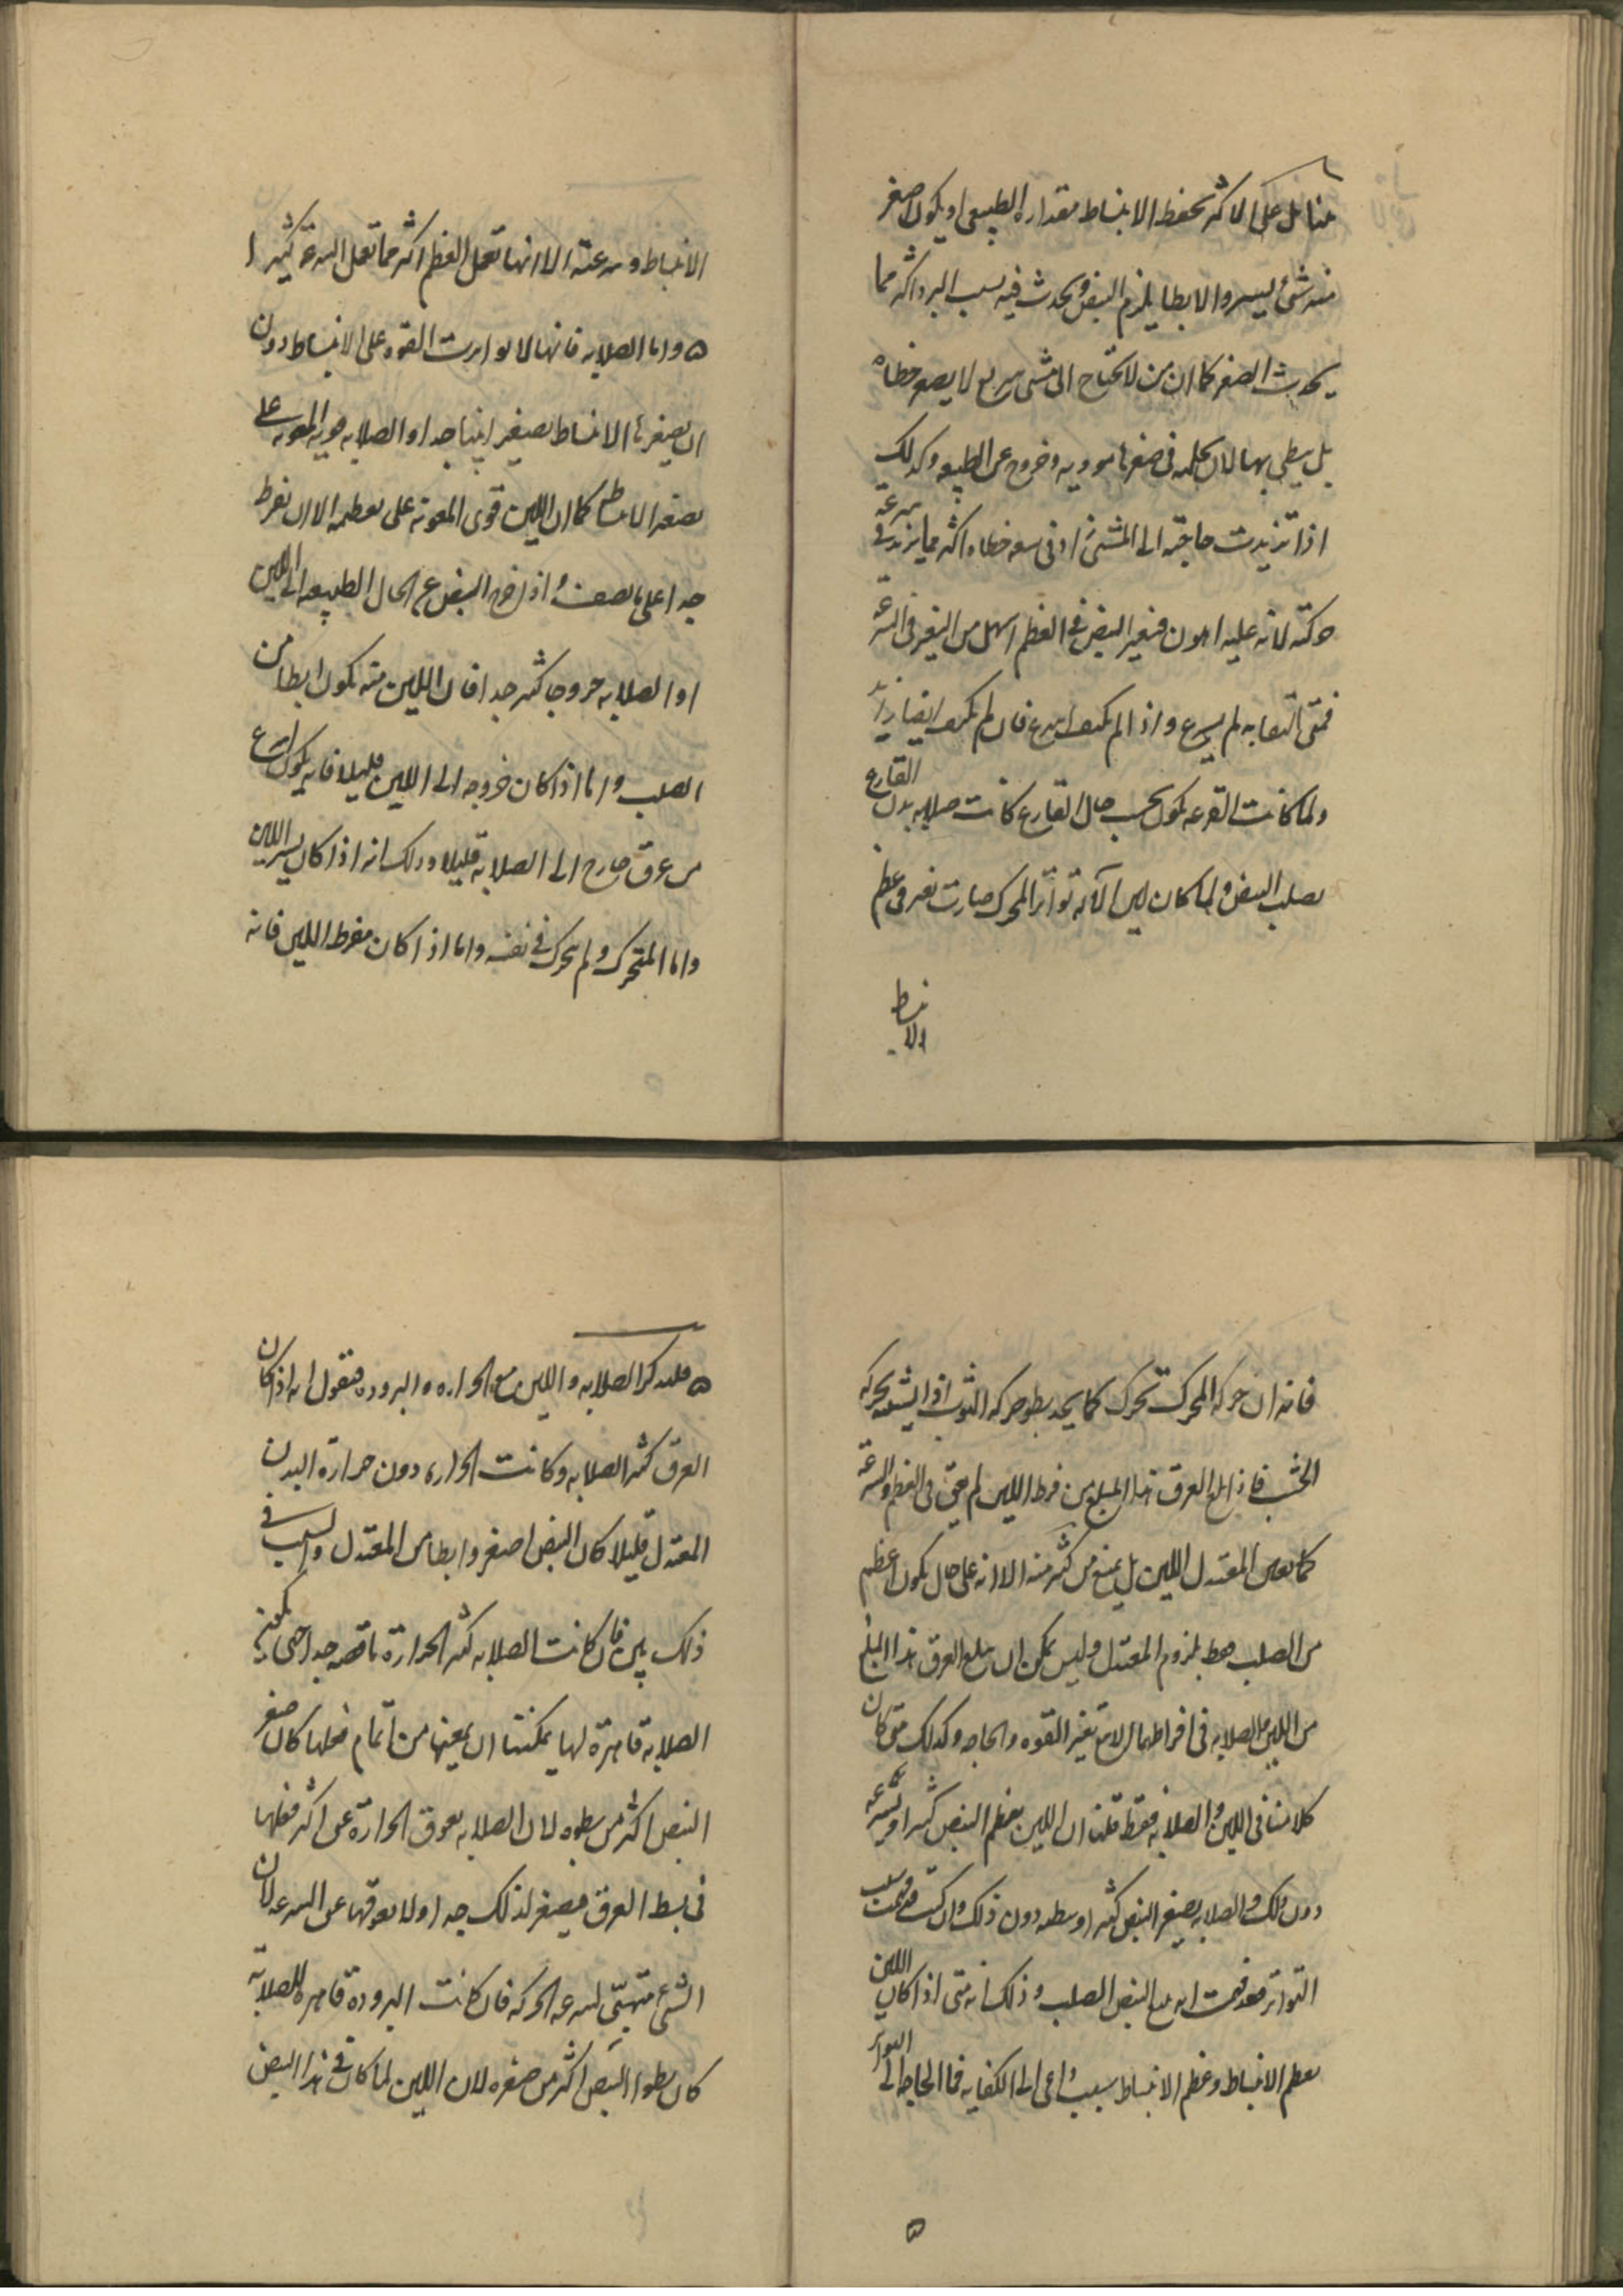 على الاكثر يحفظ الانبساط مقداره الطبيعى او يكون اصغر
منه بشئ يسير والابطا يلزم النبض ويحدث فيه بسبب البرد اكثر مما
يحدث الصغر كما ان من لا يحتاج الى مشى سريع لا يصغر خطاه
بل يبطى بها لان بكليه فى صغرها موويه وخروج عن الطبيعه وكذلك
اذا تزيدت حاجته الى المشى زاد فى سعه خطاه اكثر مما يزيد فى سرعة
حركته لانه عليه اهون فتغير النبض فى العظم اسهل من التغير فى السرعة
فمتى اكتفا به لم يسرع واذا لم يكتف اسرع فان لم يكتف ايضا
ولما كانت القرعه تكون بحسب حال القارع كانت صلابه بدن القارع
تصلب النبض ولما كان لين الآلة تواتر المحرك صارت تعين فى عظم
الانبساط
الانبساط وسرعته الا انها تعمل العظم اكثر مما تعمل السرعة كثيرا
ه واما الصلابه فانها لا تواتيت القوه على الانبساط دون
ان يصغر هذا الانبساط تصغيرا بينا جدا والصلابه قويه المعونه على
تصغير الانبساط كما ان اللين قوى المعونة على تعظيمه الا ان يفرط
جدا على ما نصف اذا خرج النبض عن الحال الطبيعه الى اللين
او الصلابه خروجا كثير جدا فان اللين منه يكون ابطا من
الصلب واما اذا كان خروجه الى اللين قليلا فانه يكون اسرع
من عرق خارج الى الصلابة قليلا وذلك انه اذا كان يسير اللين
واما المتحرك ولم يتحرك فى نفسه واما اذا كان مفرط اللين فانه
فانه ان حركه المحرك تحرك كما يجد بطو حركه الثوب اذا
الخشب فاذا بلغ العرق هذا المبلغ من فرط اللين لم يعن فى العظم والسرعة
كما يعين المعتدل اللين بل يمنع من كثير منه الا انه على حال يكون اعظم
من الصلب فقط بلزوم المعتدل وليس يمكن ان يبلغ العرق هذا المبلغ
من اللين والصلابه فى افراطهما الا مع تغير القوه والحاجه وكذلك متى كان
كلامنا فى اللين والصلابه فقط قلنا ان اللين يعظم النبض كثيرا ويسرعه
دون ذلك والصلابه يصغر النبض كثيرا وبطه دون ذلك وان كنت قد فهمت سبب
التواتر فقد فهمت انه مع النبض الصلب وذلك انه متى اذا كان اللين
يعظم الانبساط وعظم الانبساط سبب داعى الى الكفايه فما الحاجه الى التواتر
ه
ه فلنذكر الصلابه واللين مع الحراره والبروده فنقول انه اذا كان
العرق كثير الصلابه وكانت الحراره دون حرارة البدن
المعتدل قليلا كان النبض اصغر وابطا من المعتدل والسبب فى
ذلك بين فان كانت الصلابه كثير الحرارة ناقصه جدا حتى تكون
الصلابه قاهرة لها يمكنها ان يمنعها من اتمام فعلها كان صغر
النبض اكثر من بطوه لان الصلابه يعوق الحرارة عن اكثر فعلها
فى بسط العرق فيصغر لذلك جدا ولا يعوقها عن السرعه لان
الشى متهيئ لسرعه الحركه فان كانت البرودة قاهره للصلابة
كان بطو النبض اكثر من صغره لان اللين لما كان فى هذا النبض